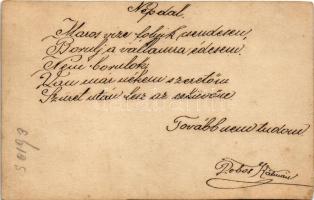 Népdal.
Maros vize folyik csendesen,
Borulj a vállamra édesem!
Nem borulok,
Van már nékem szeretőm
Szüret után lesz az esküvőm
Tovább nem tudom
Dobos Kálmán
S 6193